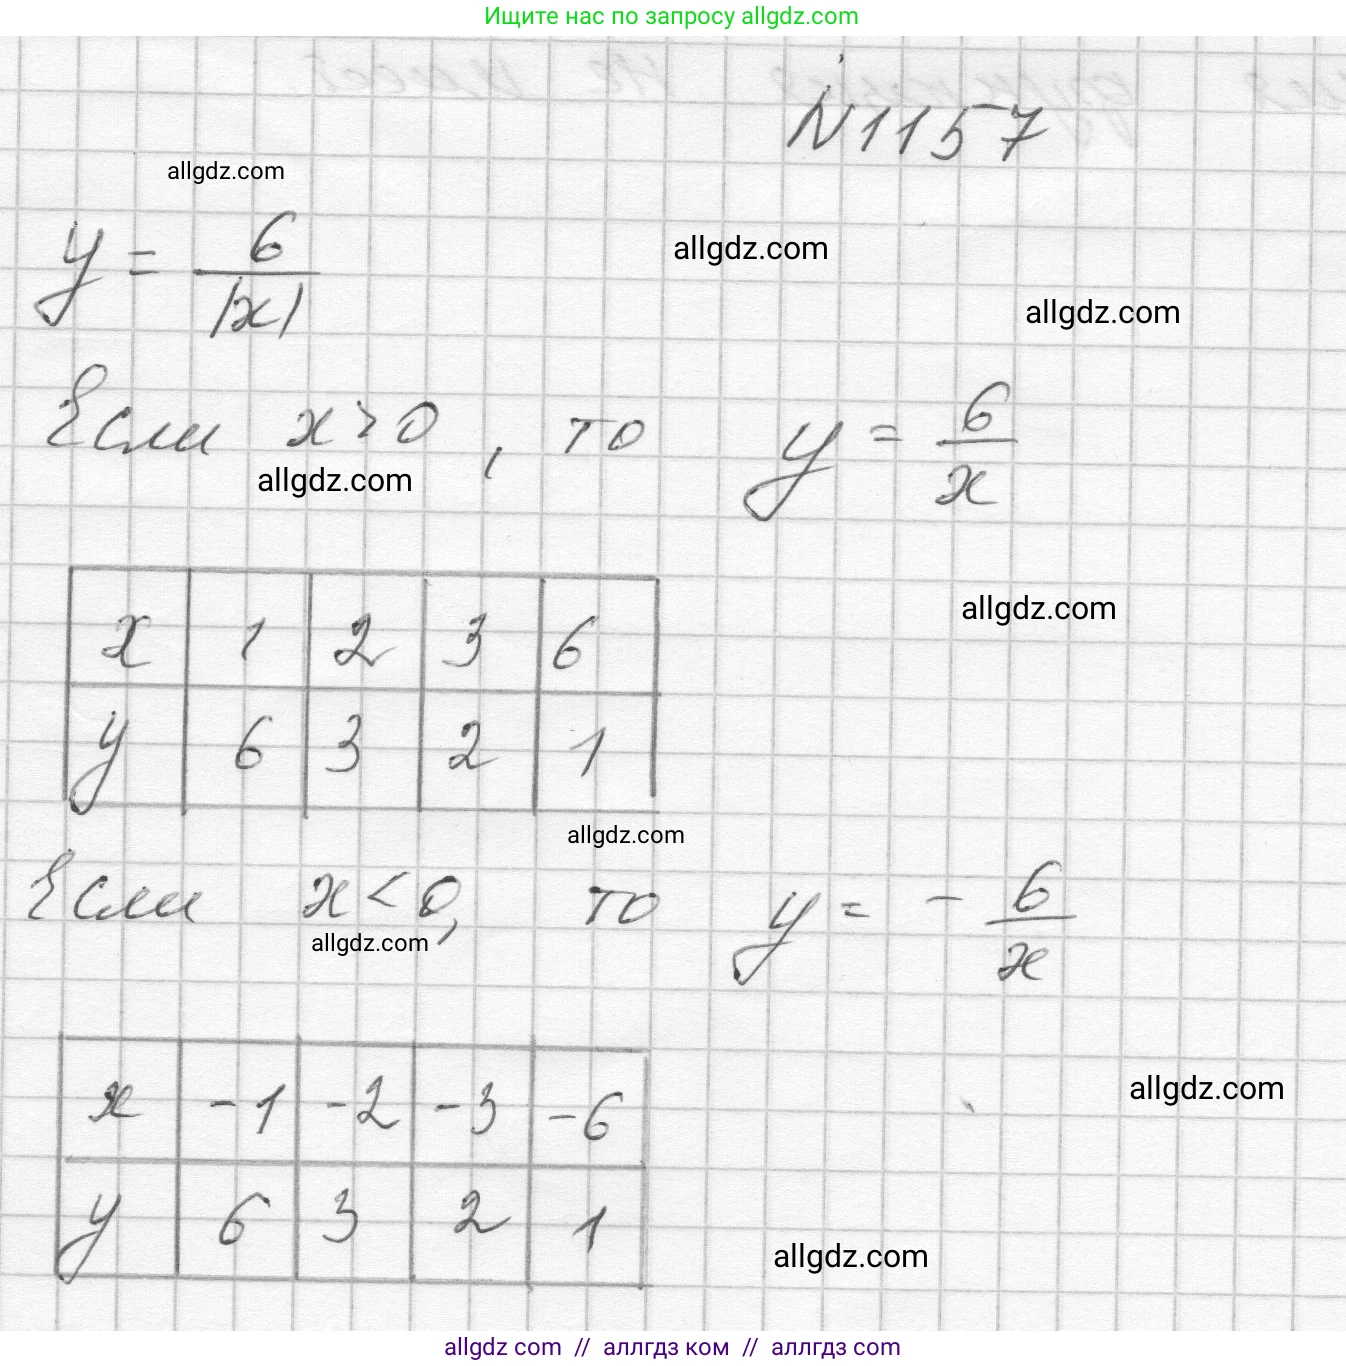 Ищите нас по запросу allgdz.com
N1157
allgdz.com
y = 6/|x|
allgdz.com
allgdz.com
Если x>0, то y = 6/x
allgdz.com
allgdz.com
x 1 2 3 6
y 6 3 2 1
allgdz.com
Если x<0, то y = - 6/x
allgdz.com
allgdz.com
x -1 -2 -3 -6
y 6 3 2 1
allgdz.com
allgdz com // аллгдз ком // аллгдз com